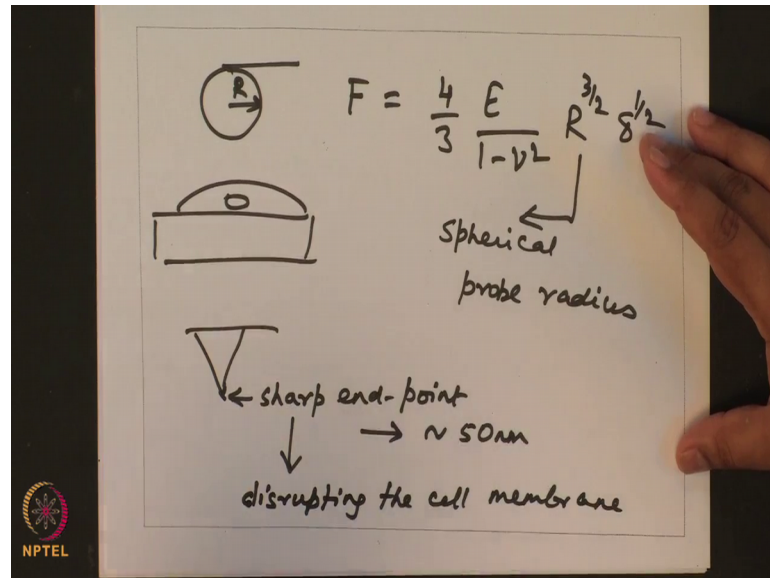 R
F = 4/3 E/(1-ν²) R^3/2 δ^1/2
Spherical
probe radius
← sharp end-point
→ ~ 50nm
disrupting the cell membrane
NPTEL